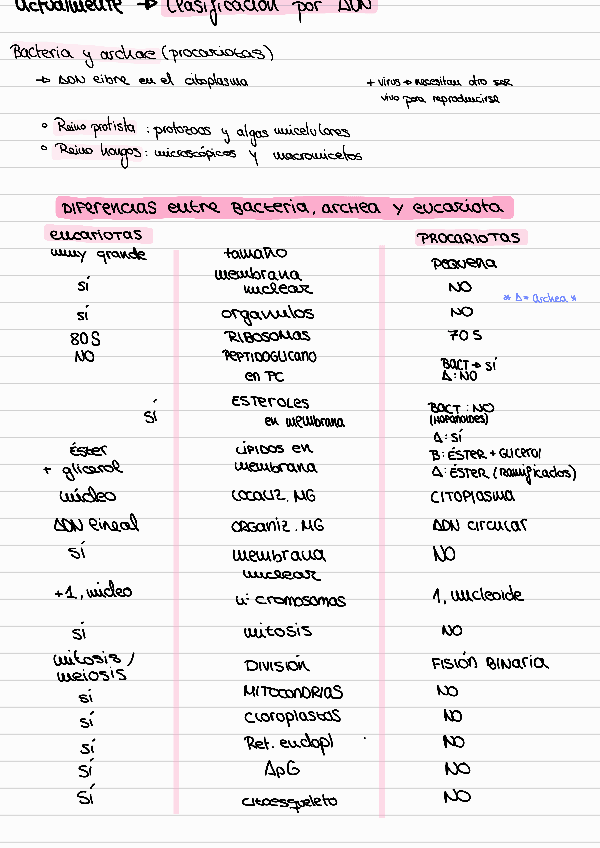 Actualmente → Clasificación por ADN
Bacteria y archae (procariotas)
→ ADN libre en el citoplasma
+ virus → necesitan otro ser
vivo para reproducirse
° Reino protista : protozoos y algas unicelulares
° Reino hongos : microscópicos y macromicetos
DIFERENCIAS entre BACTERIA, ARCHEA Y EUCARIOTA
EUCARIOTAS PROCARIOTAS
muy grande tamaño pequeña
SÍ membrana nuclear NO
* A = archea *
SÍ organulos NO
80 S RIBOSOMAS 70 S
NO PEPTIDOGLICANO en PC BACT → SÍ
A : NO
SÍ ESTEROLES en membrana BACT : NO
(HOPANOIDES)
A : SÍ
éster + glicerol LÍPIDOS en membrana B : ÉSTER + GLICEROL
A : ÉSTER (Ramificados)
núcleo LOCALIZ. MG CITOPLASMA
ADN lineal ORGANIZ. MG ADN circular
SÍ membrana nuclear NO
+1, núcleo nº cromosomas 1, nucleoide
SÍ mitosis NO
mitosis / meiosis DIVISIÓN FISIÓN BINARIA
SÍ MITOCONDRIAS NO
SÍ CLOROPLASTOS NO
SÍ Ret. endopl NO
SÍ ApG NO
SÍ citoesqueleto NO